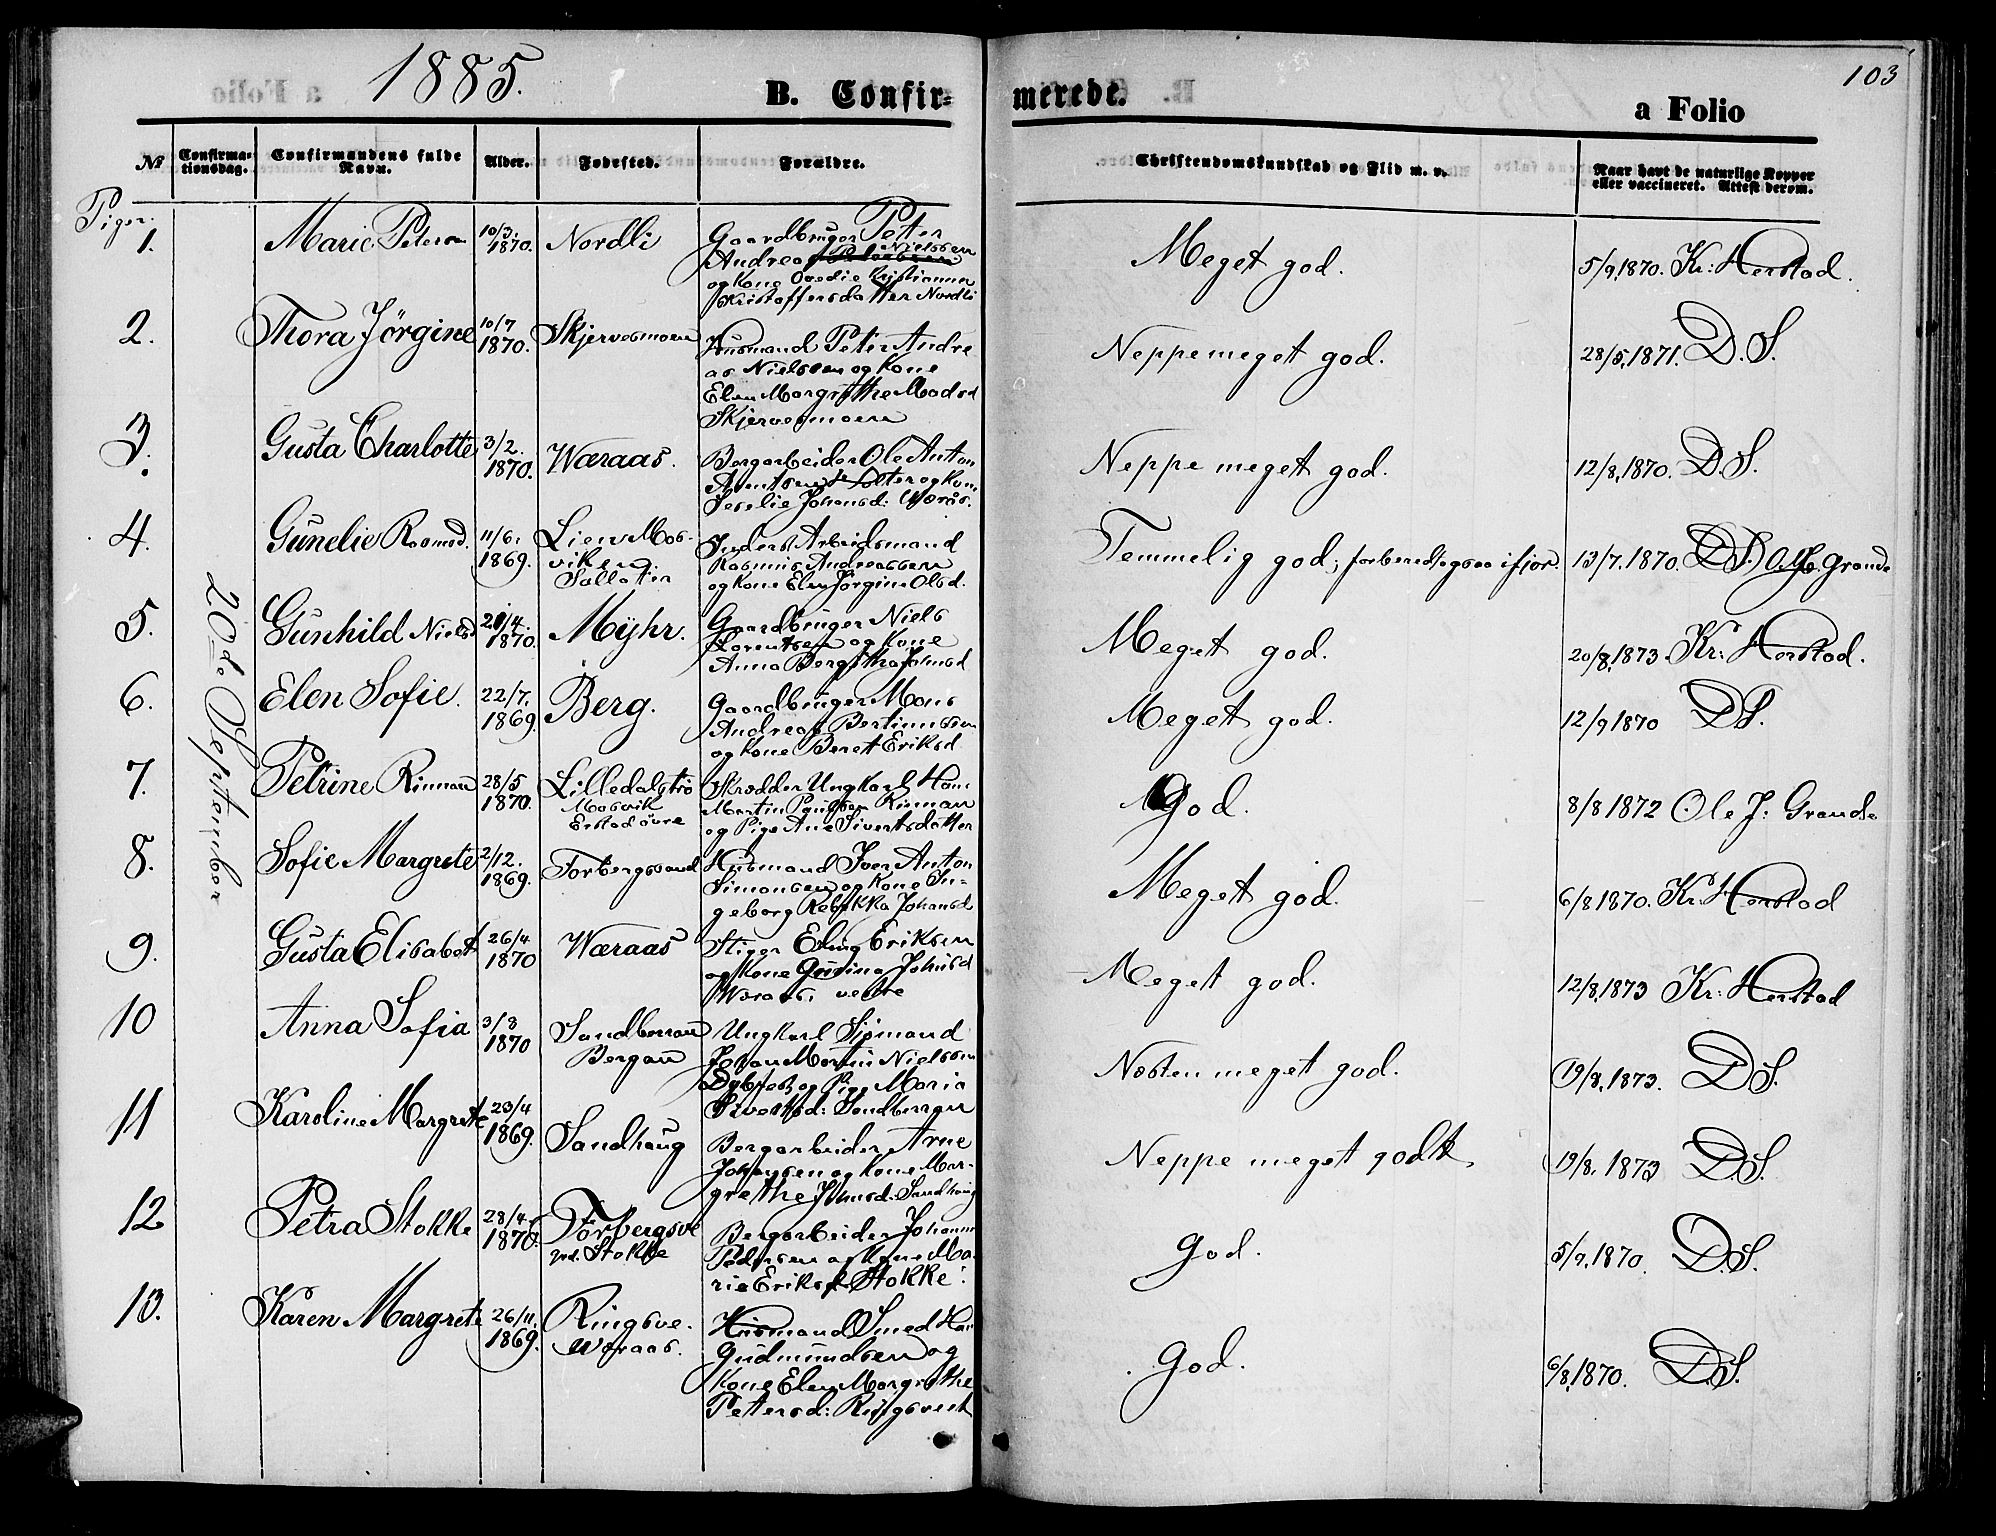 1885.
B. Confir=
merede.
103
a Folio
№
Confirma-
tionsdag.
Confirmandens fulde
Navn.
Alder.
Fødested.
Forældre.
Christendomskundskab og Flid m. v.
Naar havt de naturlige Kopper
eller vaccineret. Attest derom.
Piger.
20de September
1.
Marie Petersen
10/3.
1870.
Nordli
Gaardbruger Petter
Nielssen
Andreas
og Kone
Kristoffersdatter Nordli
Meget god.
5/9. 1870. Kr: Herstad.
2.
Thora Jörgine
10/7
1870.
Skjervesmoen
Husmand Peter Andre
as Nielssen og Kone
Elen Margrethe Madsd
Skjervesmoen
Neppe meget god.
28/5. 1871. D. S.
3.
Gusta Charlotte
3/2.
1870.
Wæraas.
Bergarbeider Ole Anton
og Kone
Johansd: Werås.
Neppe meget god.
12/8. 1870. D. S.
4.
Gunelie Rasmusd.
11/6.
1869.
Lien Mos-
viken.
Inderst Arbeidsmand
Rasmus Andreassen
og Kone Elen Jörgine Olsd.
Temmelig god; forberedt ogsaa ifjor.
13/7. 1870. D.S. Grande
5.
Gunhild Nielsd
21/4.
1870.
Myhr.
Gaardbruger Niels
Lorentsen og Kone
Anna Bergitha Johnsd
Meget god.
20/8. 1873 Kr: Herstad.
6.
Elen Sofie.
22/7.
1869.
Berg.
Gaardbruger Mons
Andreas Bertinussen
og Kone Beret Eriksd
Meget god.
12/9 1870 D S.
7.
Petrine Rinnan
28/5
1870.
Lilledalstrø
Mosvik
øvre
Skrædder Ungkarl Hans
Martin Paulsen Rinnan
og Pige Ane Sivertsdatter
God.
8/8 1872 Ole J: Grande
8.
Sofie Margrete
2/12.
1869.
Forbergssand
Husmand Iver Anton
Simonsen og Kone In=
geborg Rebekka Johansd
Meget god.
6/8 1870. Kr. Herstad
9.
Gusta Elisabet
26/4
1870
Wæraas
Stiger Eriksen
og Kone Gudina Johnsd
Weraas vestre
Meget god.
12/8. 1873 Kr: Herstad
10
Anna Sofia
3/8
1870
Sandberran
Bergan
Ungkarl Sjömand
Johan Martin Nielssen
og Pige Maria
Sivertsd: Sandberran
Næsten meget god.
19/8. 1873. D S.
11
Karoline Margrete
23/4
1869.
Sandhaug
Bergarbeider Arne
Johansen og Kone Mar-
grethe Johnsd: Sandhaug
Neppe meget godt
19/8. 1873 D S.
12
Petra Stokke
28/4
1870.
Forbergsve
Stokke
Bergarbeider Johannes
Pedersen og Kone Ma-
rie Eriksd Stokke.
God.
5/9. 1870. D. S.
13.
Karen Margrete
26/11.
1869.
Ringsve.
Weraas.
Husmand Smed Hans
Gudmundsen og
Kone Elen Margrethe
Pettersd: Ringsveet
God.
6/8. 1870. D. S.